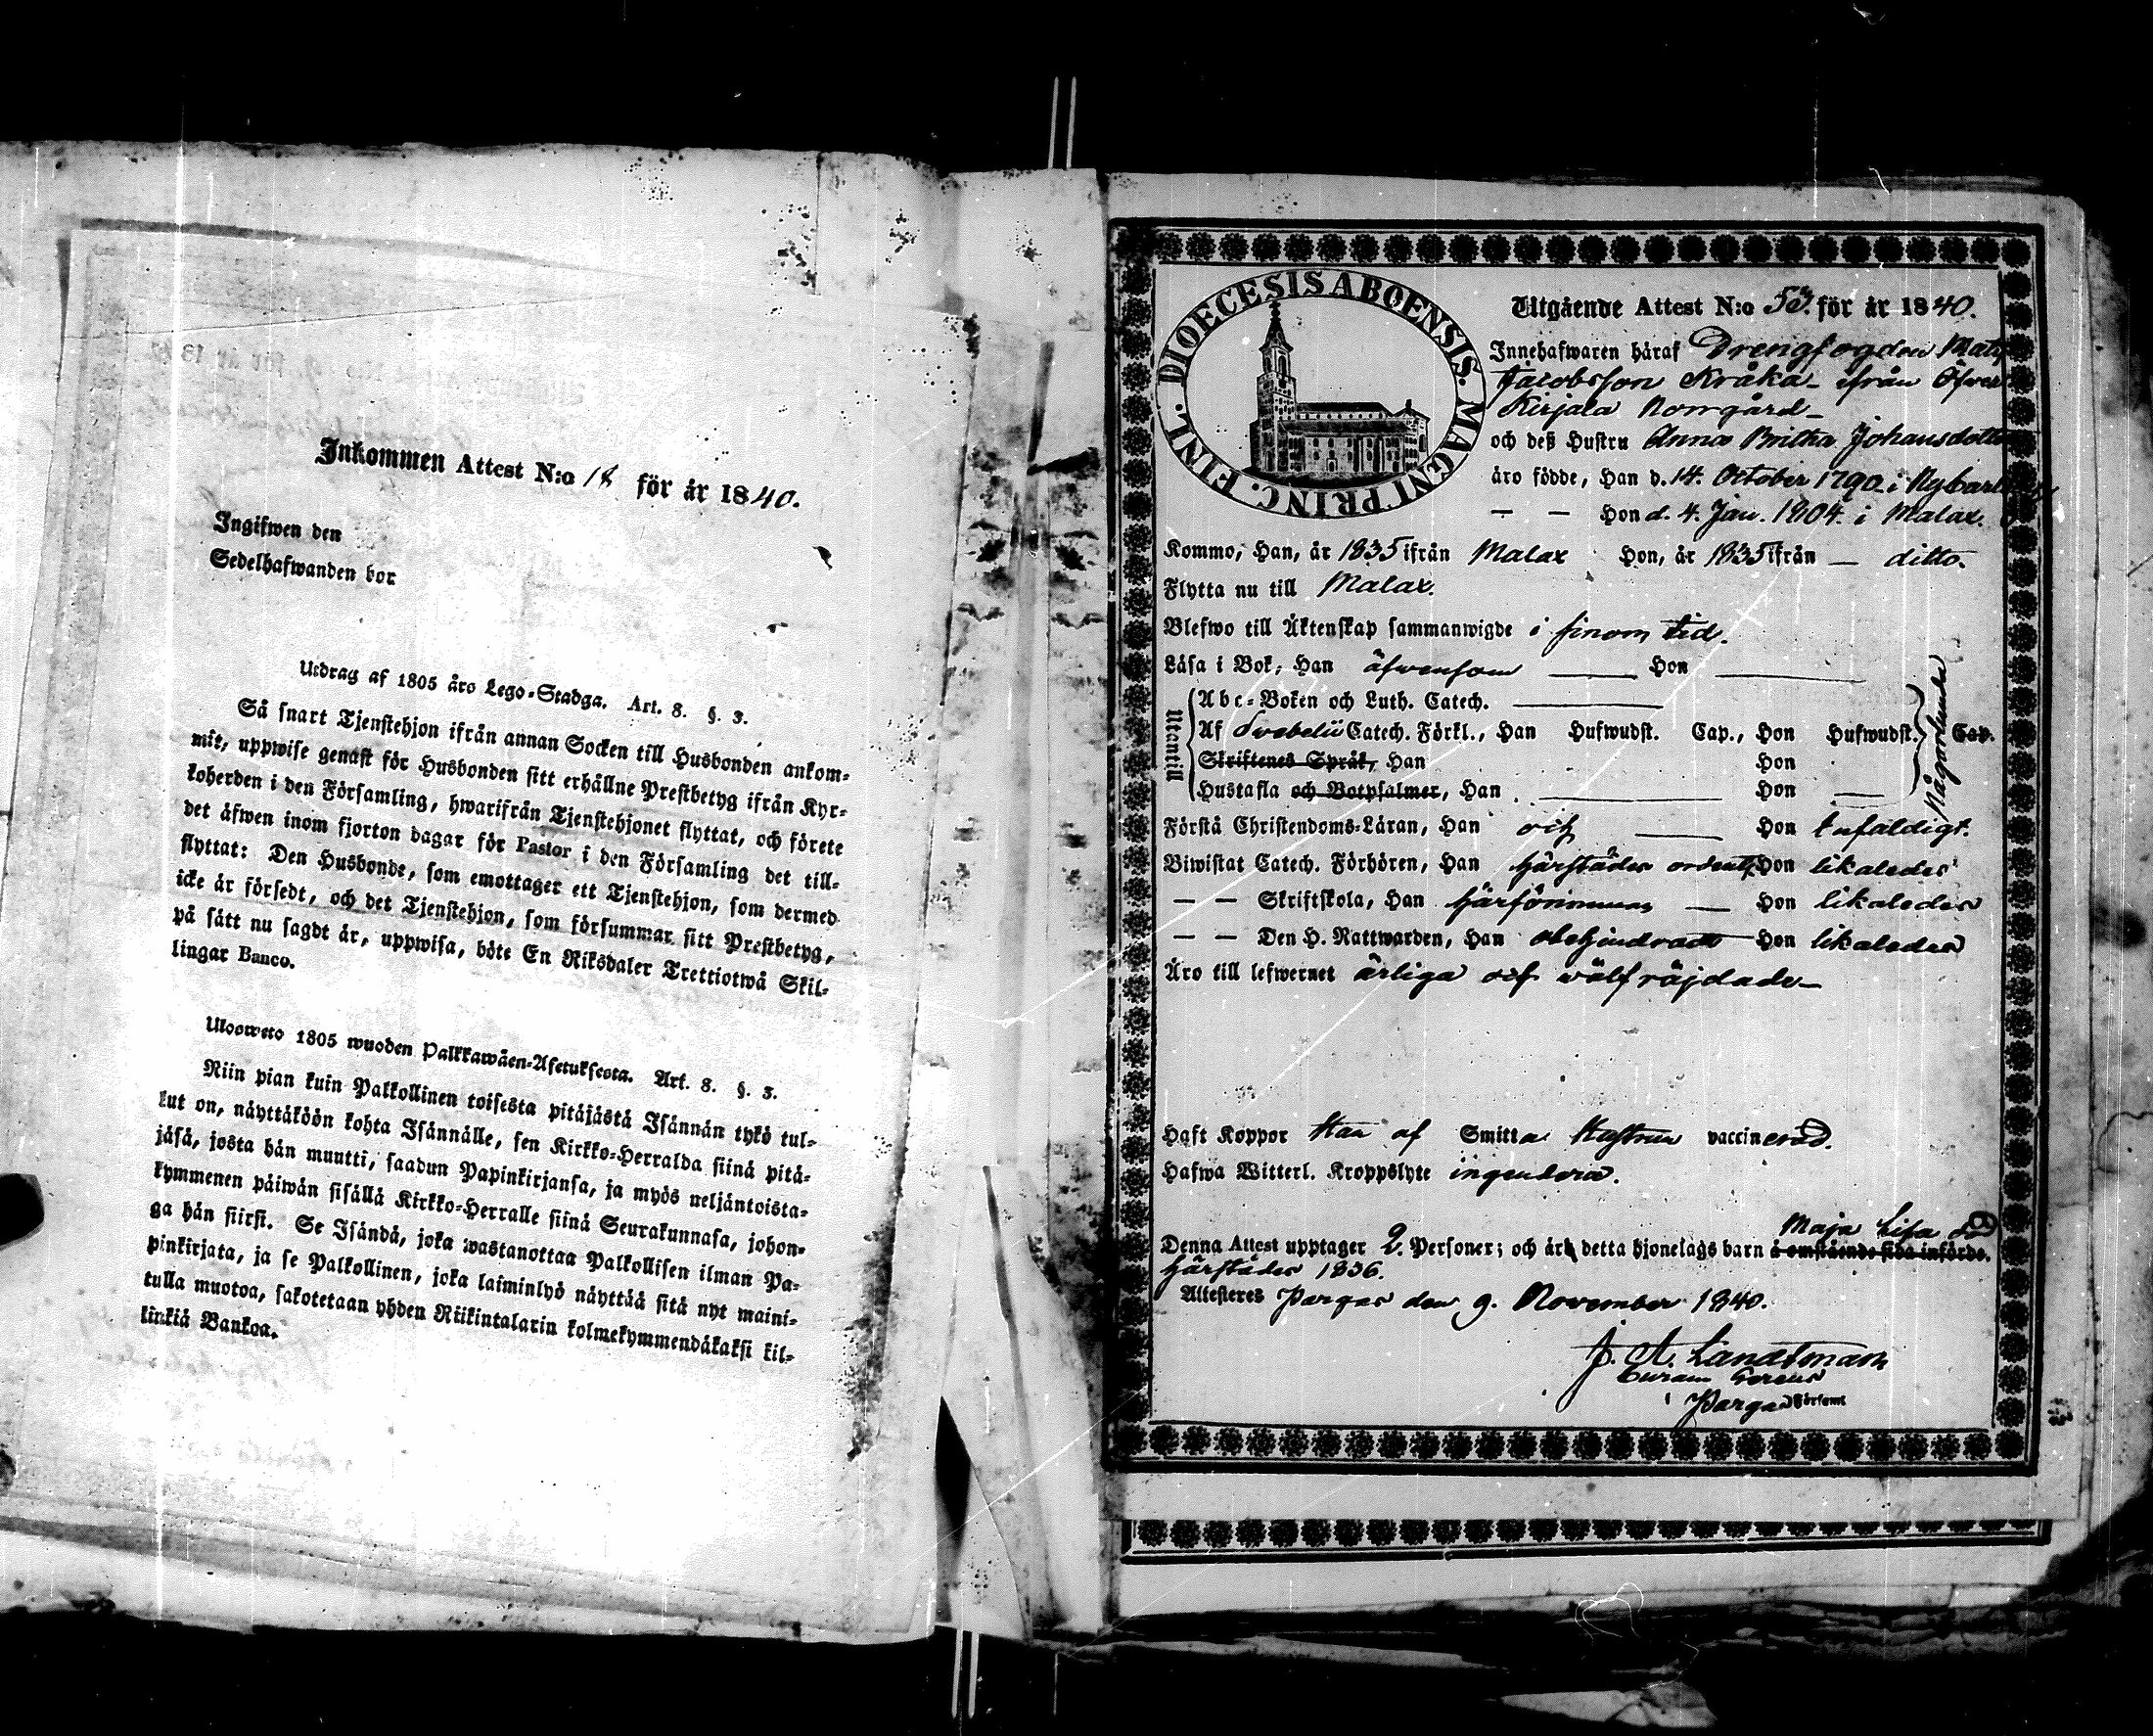 Inkommen Attest N:o 18 för år 1840.
Ingifwen den
Sedelhafwanden bor
Utdrag af 1805 års Lego-Stadga. Art. 8. §. 3.
Så snart Tjenstehjon ifrån annan Socken till Husbonden ankom-
mit, uppwise genast för Husbonden sitt erhållne Prestbetyg ifrån Kyr-
koherden i den Församling, hwarifrån Tjenstehjonet flyttat, och förete
det äfwen inom fjorton dagar för Pastor i den Församling det till-
flyttat: Den Husbonde, som emottager ett Tjenstehjon, som dermed
icke är försedt, och det Tjenstehjon, som försummar sitt Prestbetyg,
på sätt nu sagdt är, uppwisa, böte En Riksdaler Trettiotwå Skil-
lingar Banco.
Ulosweto 1805 wuoden Palkkawäen-Asetuksesta. Art. 8. §. 3.
Niin pian kuin Palkollinen toisesta pitäjästä Isännän tykö tul-
lut on, näyttäköön kohta Isännälle, sen Kirkko-Herralda siinä pitä-
jäsä, josta hän muutti, saadun Papinkirjansa, ja myös neljäntoista-
kymmenen päiwän sisällä Kirkko-Herralle siinä Seurakunnasa, johon-
ga hän siirsi. Se Isändä, joka wastanottaa Palkollisen ilman Pa-
pinkirjata, ja se Palkollinen, joka laiminlyö näyttää sitä nyt maini-
tulla muotoa, sakotetaan yhden Riikintalarin kolmekymmendäkaksi kil-
linkiä Bankoa.
DIOECESIS ABOENSIS. MAGNI PRINC. FINL.
Utgående Attest N:o 53. för år 1840.
Innehafwaren häraf Drengfogden Mats
Jacobsson Kråka - ifrån Öfwer
Kirjala Norrgård -
och deß Hustru Anna Britha Johansdotter
äro födde, Han d. 14. October 1790. i Nycarleby
— — Hon d. 4. Jan. 1804. i Malax.
Kommo, Han, år 1835 ifrån Malax Hon, år 1835 ifrån — ditto.
Flytta nu till Malax.
Blefwo till Äktenskap sammanwigde i sinom tid.
Läsa i Bok, Han äfwensom — Hon —
Utentill
Abc-Boken och Luth. Catech. —
Af Svebelii Catech. Förkl., Han Hufwudst. Cap., Hon Hufwudst. Cap.
Någorlunda
Skriftenes Språk, Han Hon
Hustafla och Botpsalmer, Han — Hon —
Förstå Christendoms-Läran, Han och — Hon enfaldigt.
Biwistat Catech. Förhören, Han härstädes ordentl. Hon likaledes
— — Skriftskola, Han härförinnan — Hon likaledes
— — Den H. Nattwarden, Han obehindrade Hon likaledes
Äro till lefwernet ärliga och wälfräjdade -
Haft Koppor Han af Smitta Hustrun vaccinerad.
Hafwa Witterl. Kroppslyte ingendera.
Maja Lisa död
Denna Attest upptager 2. Personer; och är detta hjonelags barn å omstående sida införde.
härstädes 1836.
Attesteres Pargas den 9. November 1840.
J. A. Landtman
Curam Gerens
i Pargas Församl